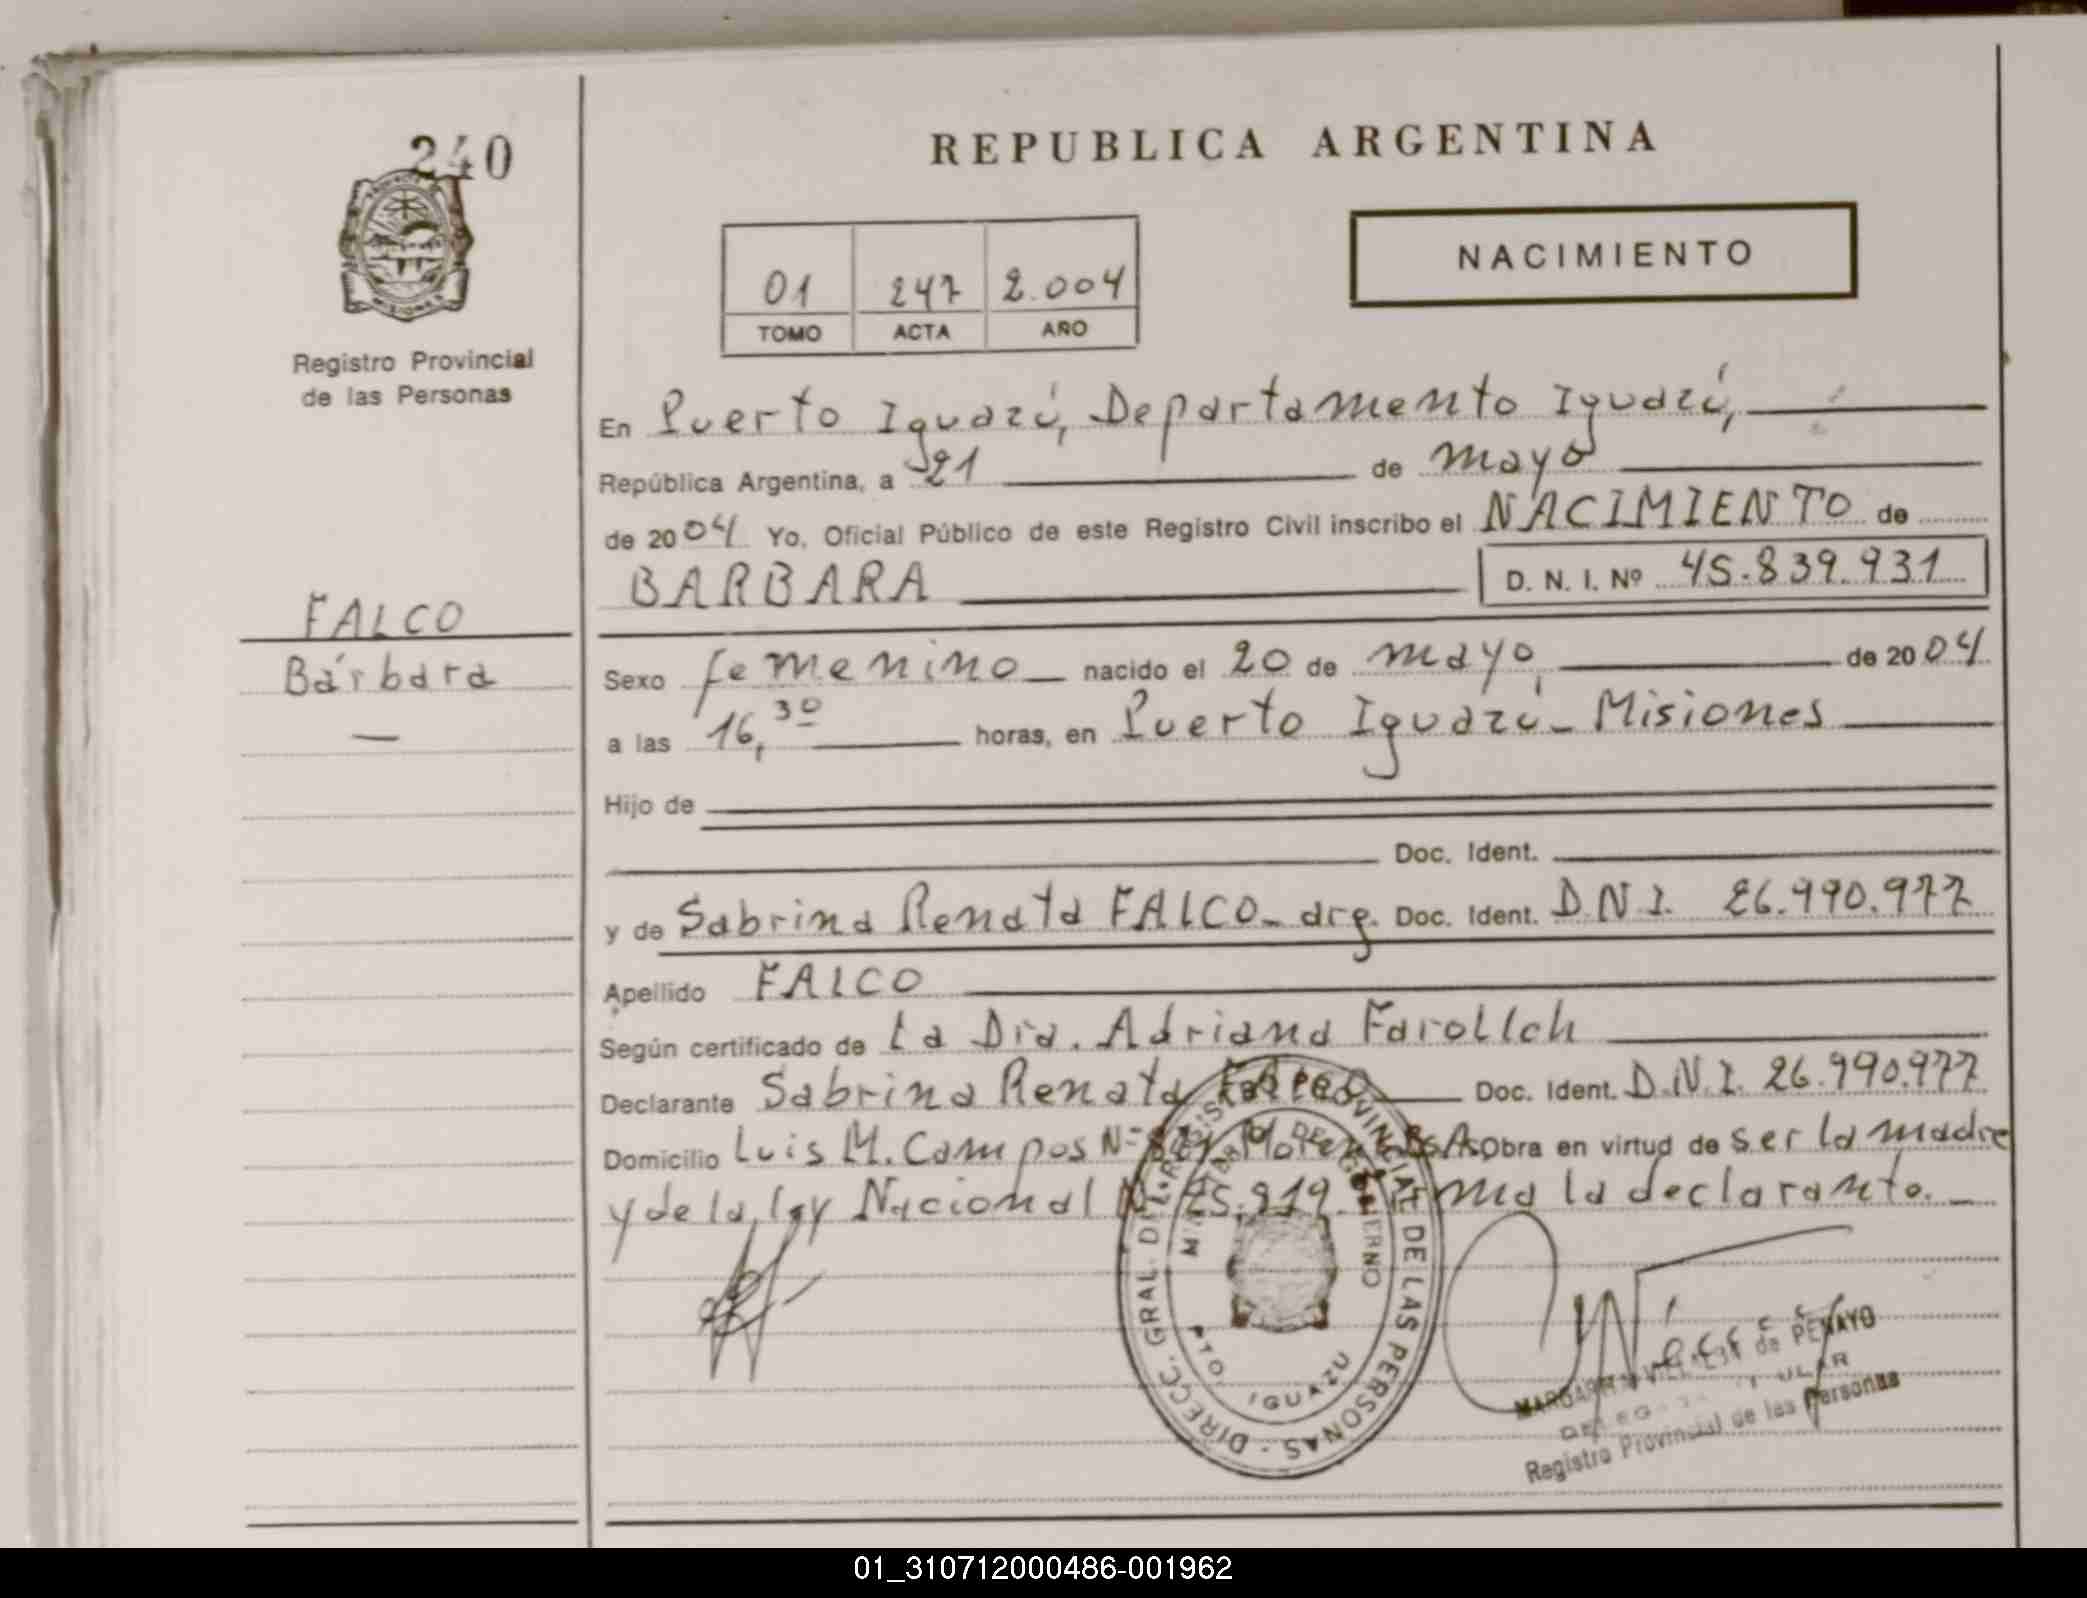 240
PROVINCIA DE
MISIONES
Registro Provincial
de las Personas
FALCO
Bárbara
—
REPUBLICA ARGENTINA
NACIMIENTO
01 247 2.004
TOMO ACTA AÑO
En Puerto Iguazú, Departamento Iguazú,
República Argentina, a 21 de mayo
de 2004 Yo, Oficial Público de este Registro Civil inscribo el NACIMIENTO de
BARBARA D. N. I. Nº 45.839.931
Sexo femenino nacido el 20 de mayo de 2004
a las 16,30 horas, en Puerto Iguazú - Misiones
Hijo de
Doc. Ident.
y de Sabrina Renata FALCO - arg. Doc. Ident. D.N.I. 26.990.977
Apellido FALCO
Según certificado de La Dra. Adriana Farollch
Declarante Sabrina Renata FALCO Doc. Ident. D.N.I. 26.990.977
Domicilio Luis M. Campos Nº Moreno Bs As Obra en virtud de ser la madre
y de la ley Nacional Nº 25.819. Firma la declarante. -
DIRECC. GRAL. DEL REGISTRO PROVINCIAL DE LAS PERSONAS -
MINISTERIO DE GOBIERNO
PTO. IGUAZU
MARGARITA de PENAYO
TITULAR
Registro Provincial de las Personas
01_310712000486-001962